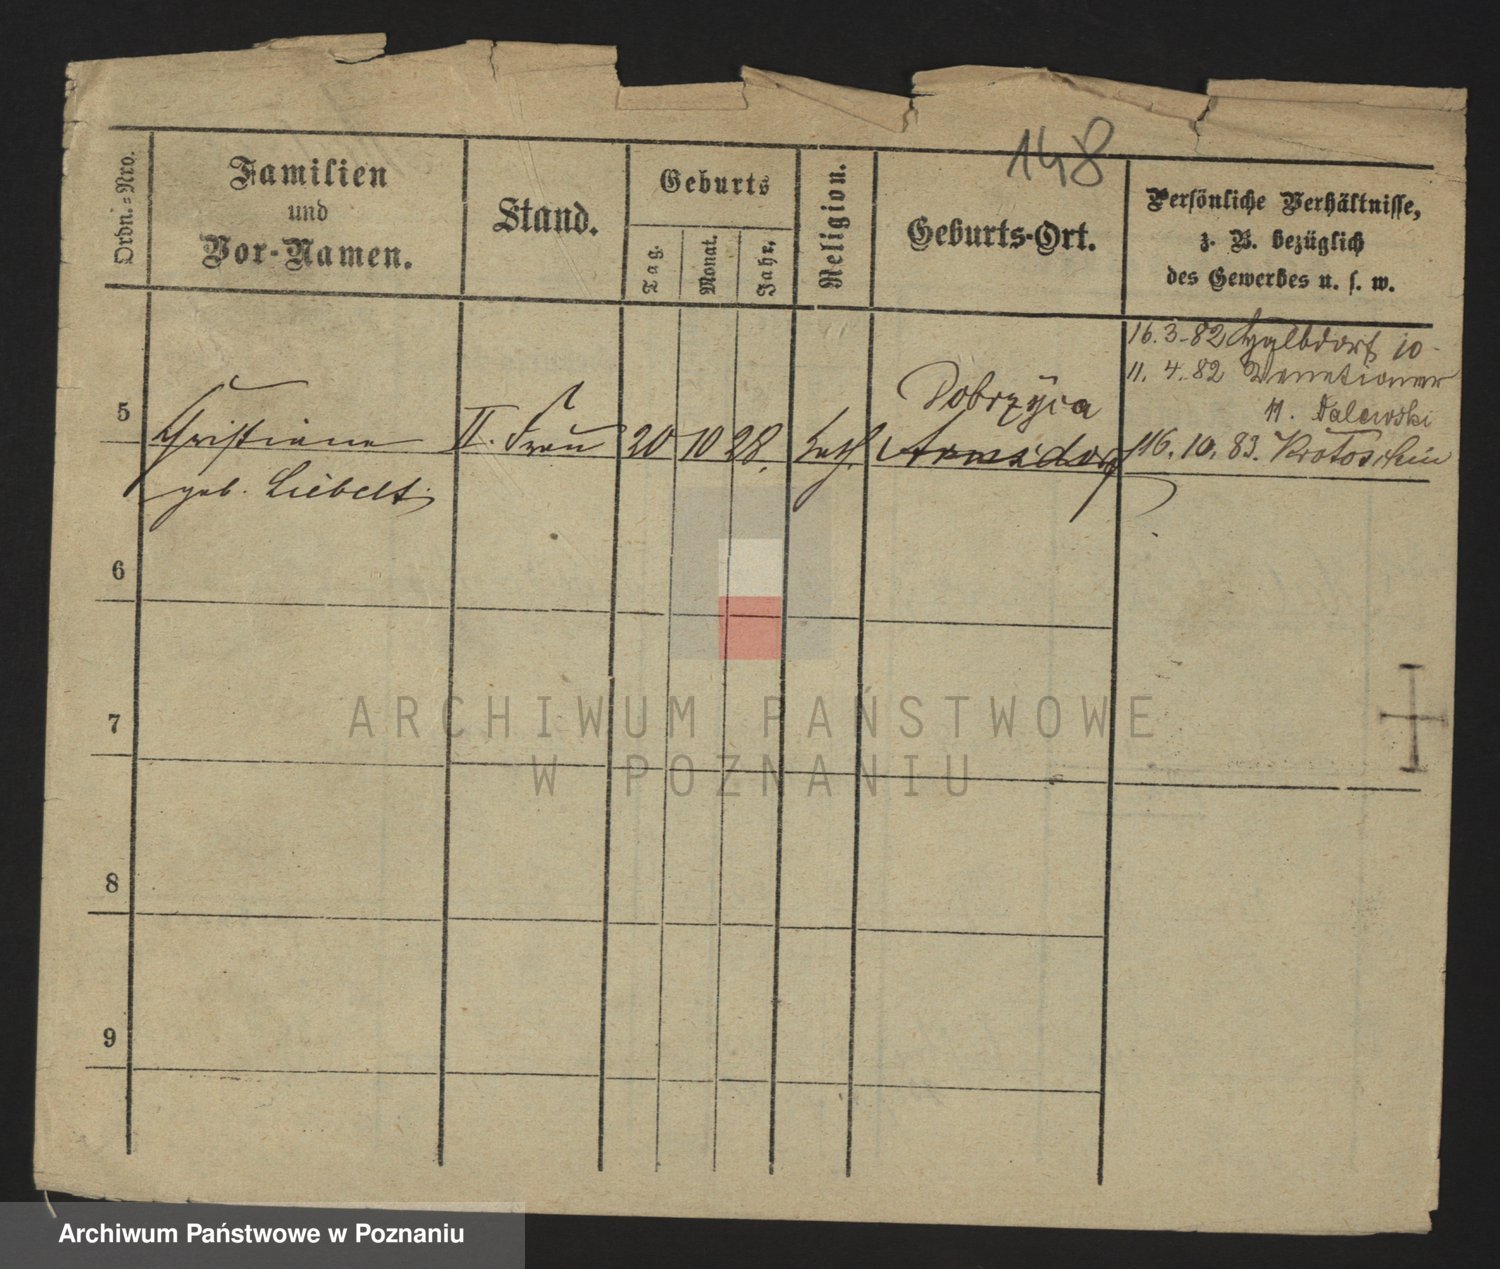 148
Ordn.=Nro.
Familien
und
Vor-Namen.
Stand.
Geburts
Tag.
Monat.
Jahr.
Religion.
Geburts-Ort.
Persönliche Verhältnisse,
z. B. bezüglich
des Gewerbes u. s. w.
16.3.-82 Halbdorf 10
11. 4.82
11. Dalewski
Dobrzyca
5 Christiane II. Frau 20 10 28. kath. Arnsdorf 16.10.83. Krotoschin
geb. Liebelt
6
7
8
9
ARCHIWUM PAŃSTWOWE
W POZNANIU
Archiwum Państwowe w Poznaniu